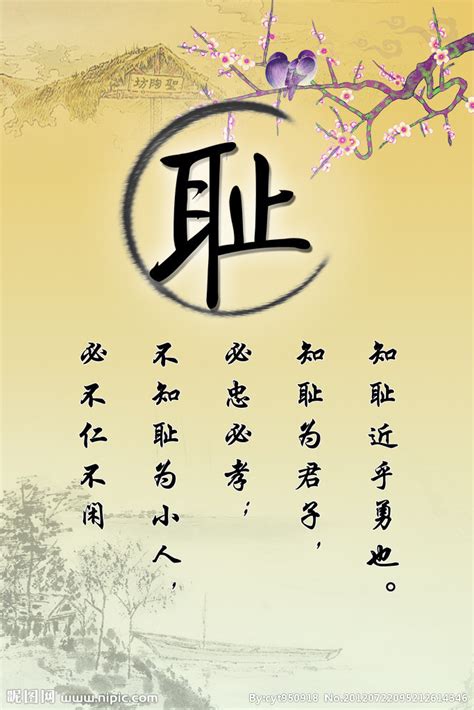 聖陶坊
耻
知耻近乎勇也。
知耻为君子，
必忠必孝；
不知耻为小人，
必不仁不闲
昵图网 www.nipic.com
By:cyt950918 No.20120722095212614346